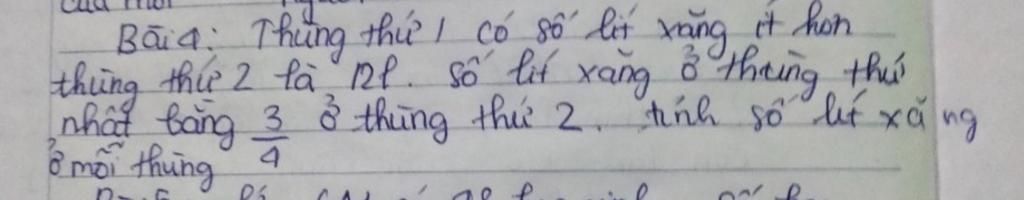 Bài 4: Thùng thứ 1 có số lít xăng ít hơn
thùng thứ 2 là 12l. Số lít xăng ở thùng thứ
nhất bằng 3/4 ở thùng thứ 2. tính số lít xăng
ở mỗi thùng